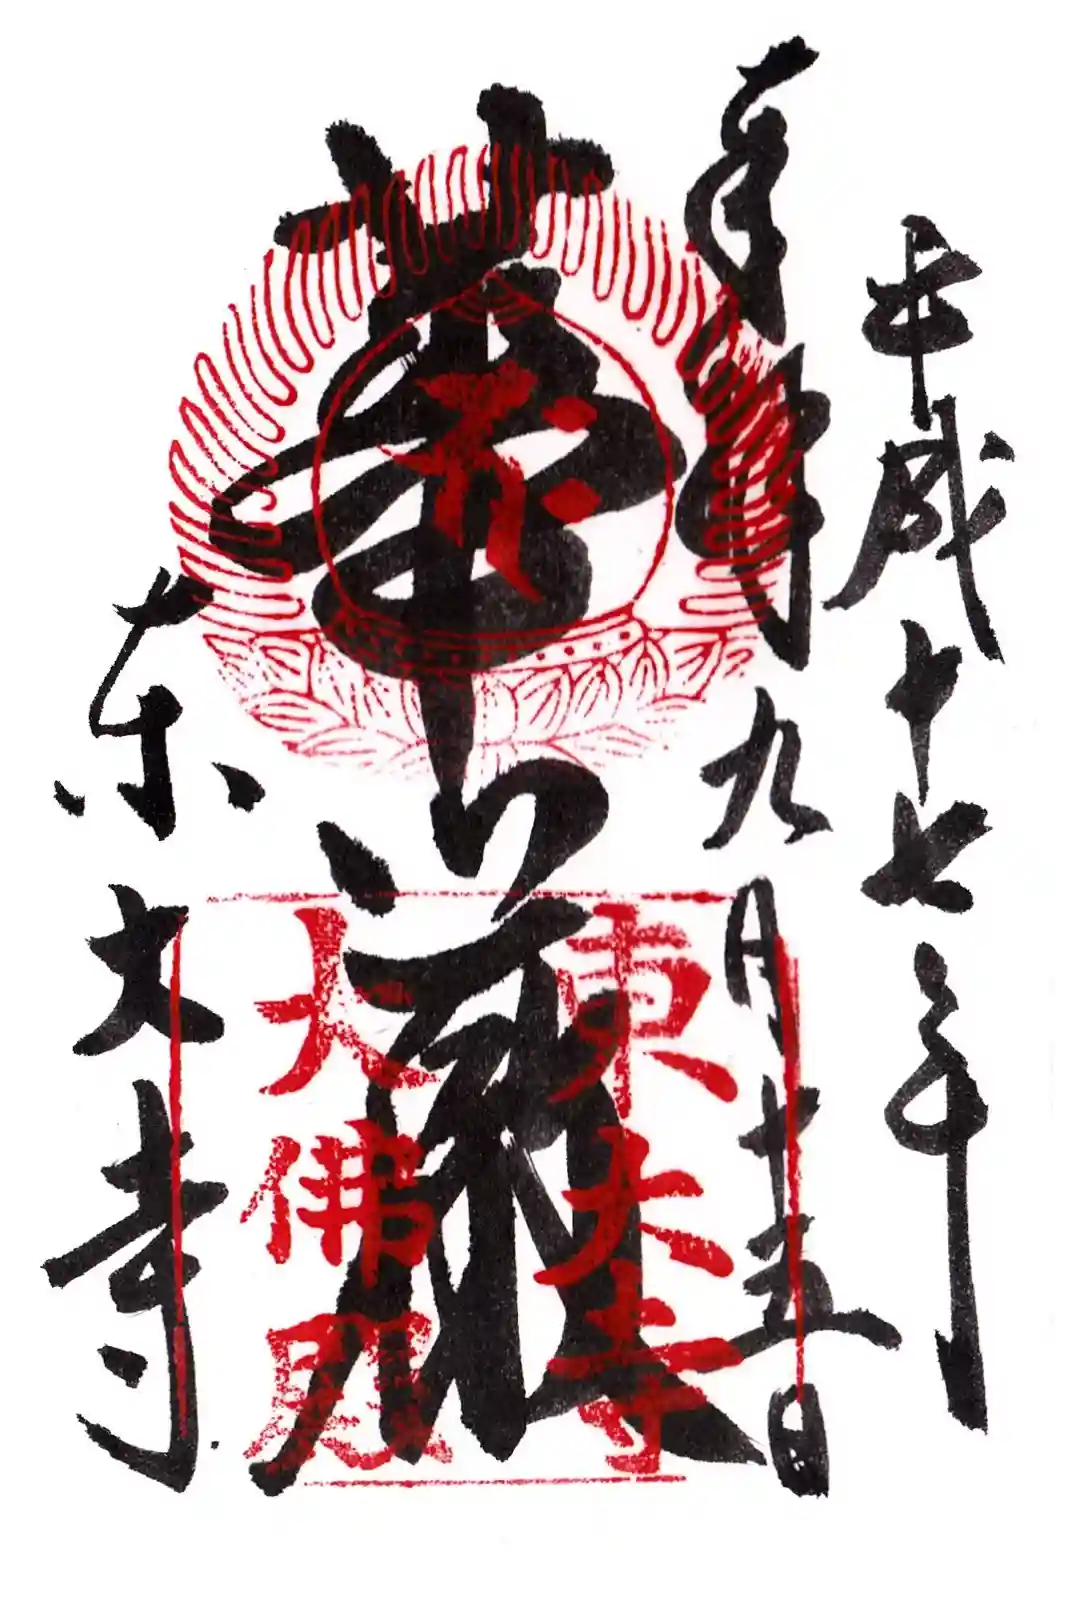 平成十七年
奉拝 九月十五日
華嚴
東大寺
東大寺
大佛殿